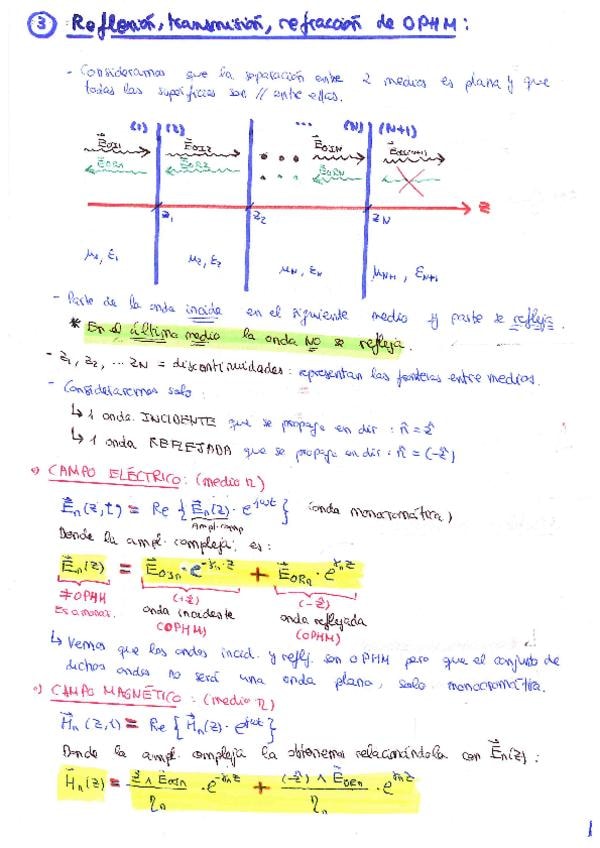 ③ Reflexión, transmisión, refracción de OPHM:
- Consideramos que la separación entre 2 medios es plana y que
todas las superficies son // entre ellas.
(1) (2) ... (N) (N+1)
E⃗OI1 E⃗OI2 E⃗OIN
E⃗OR1 E⃗OR2 E⃗ORN
z
z1 z2 zN
μ1, ε1 μ2, ε2 μN, εN μN+1, εN+1
- Parte de la onda incide en el siguiente medio y parte se refleja.
* En el último medio la onda NO se refleja.
- z1, z2, ... zN = discontinuidades: representan las fronteras entre medios.
- Consideraremos solo:
↳ 1 onda INCIDENTE que se propaga en dir: n̂ = ẑ
↳ 1 onda REFLEJADA que se propaga en dir: n̂ = (-ẑ)
CAMPO ELÉCTRICO: (medio n)
E⃗n(z,t) = Re{E⃗n(z)·e^jωt} (onda monocromática)
Ampl. comp
Donde la ampl. compleja es:
E⃗n(z) = E⃗OIn·e^-γn·z + E⃗ORn·e^γn·z
≠OPHM (+ẑ) (-ẑ)
onda incidente onda reflejada
(OPHM) (OPHM)
↳ Vemos que las ondas incid. y reflej. son OPHM pero que el conjunto de
dichas ondas no será una onda plana, solo monocromática.
CAMPO MAGNÉTICO: (medio n)
H⃗n(z,t) = Re{H⃗n(z)·e^jωt}
Donde la ampl. compleja la obtenemos relacionándola con E⃗n(z):
H⃗n(z) = (ẑ ∧ E⃗OIn)/ηn · e^-γnz + ((-ẑ) ∧ E⃗ORn)/ηn · e^γnz